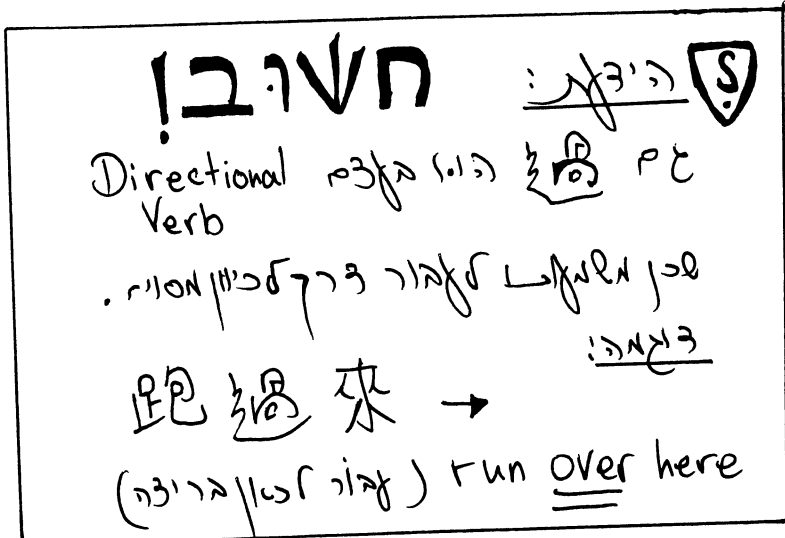 חשוב!
הידעת:
גם 過 הוא בעצם Directional
Verb
שכן משמעו לעבור דרך לכיוון מסוים.
דוגמה:
跑過來 →
run over here (עבור לכאן בריצה)